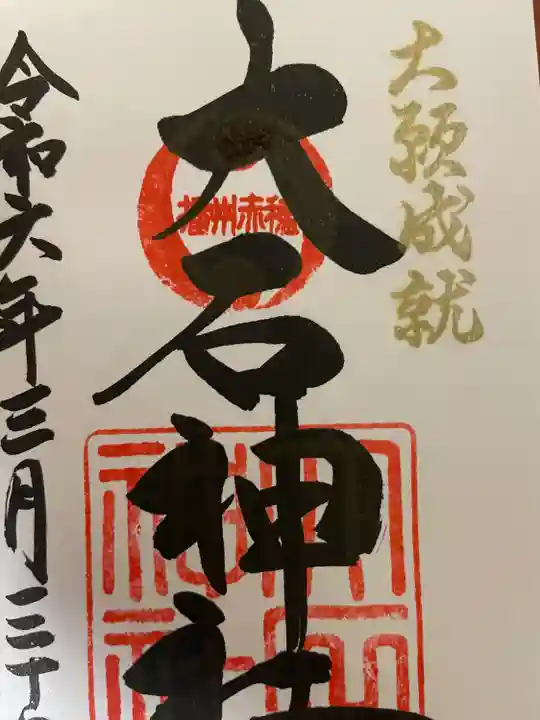 大願成就
播州赤穂
大石神社
令和六年三月三十